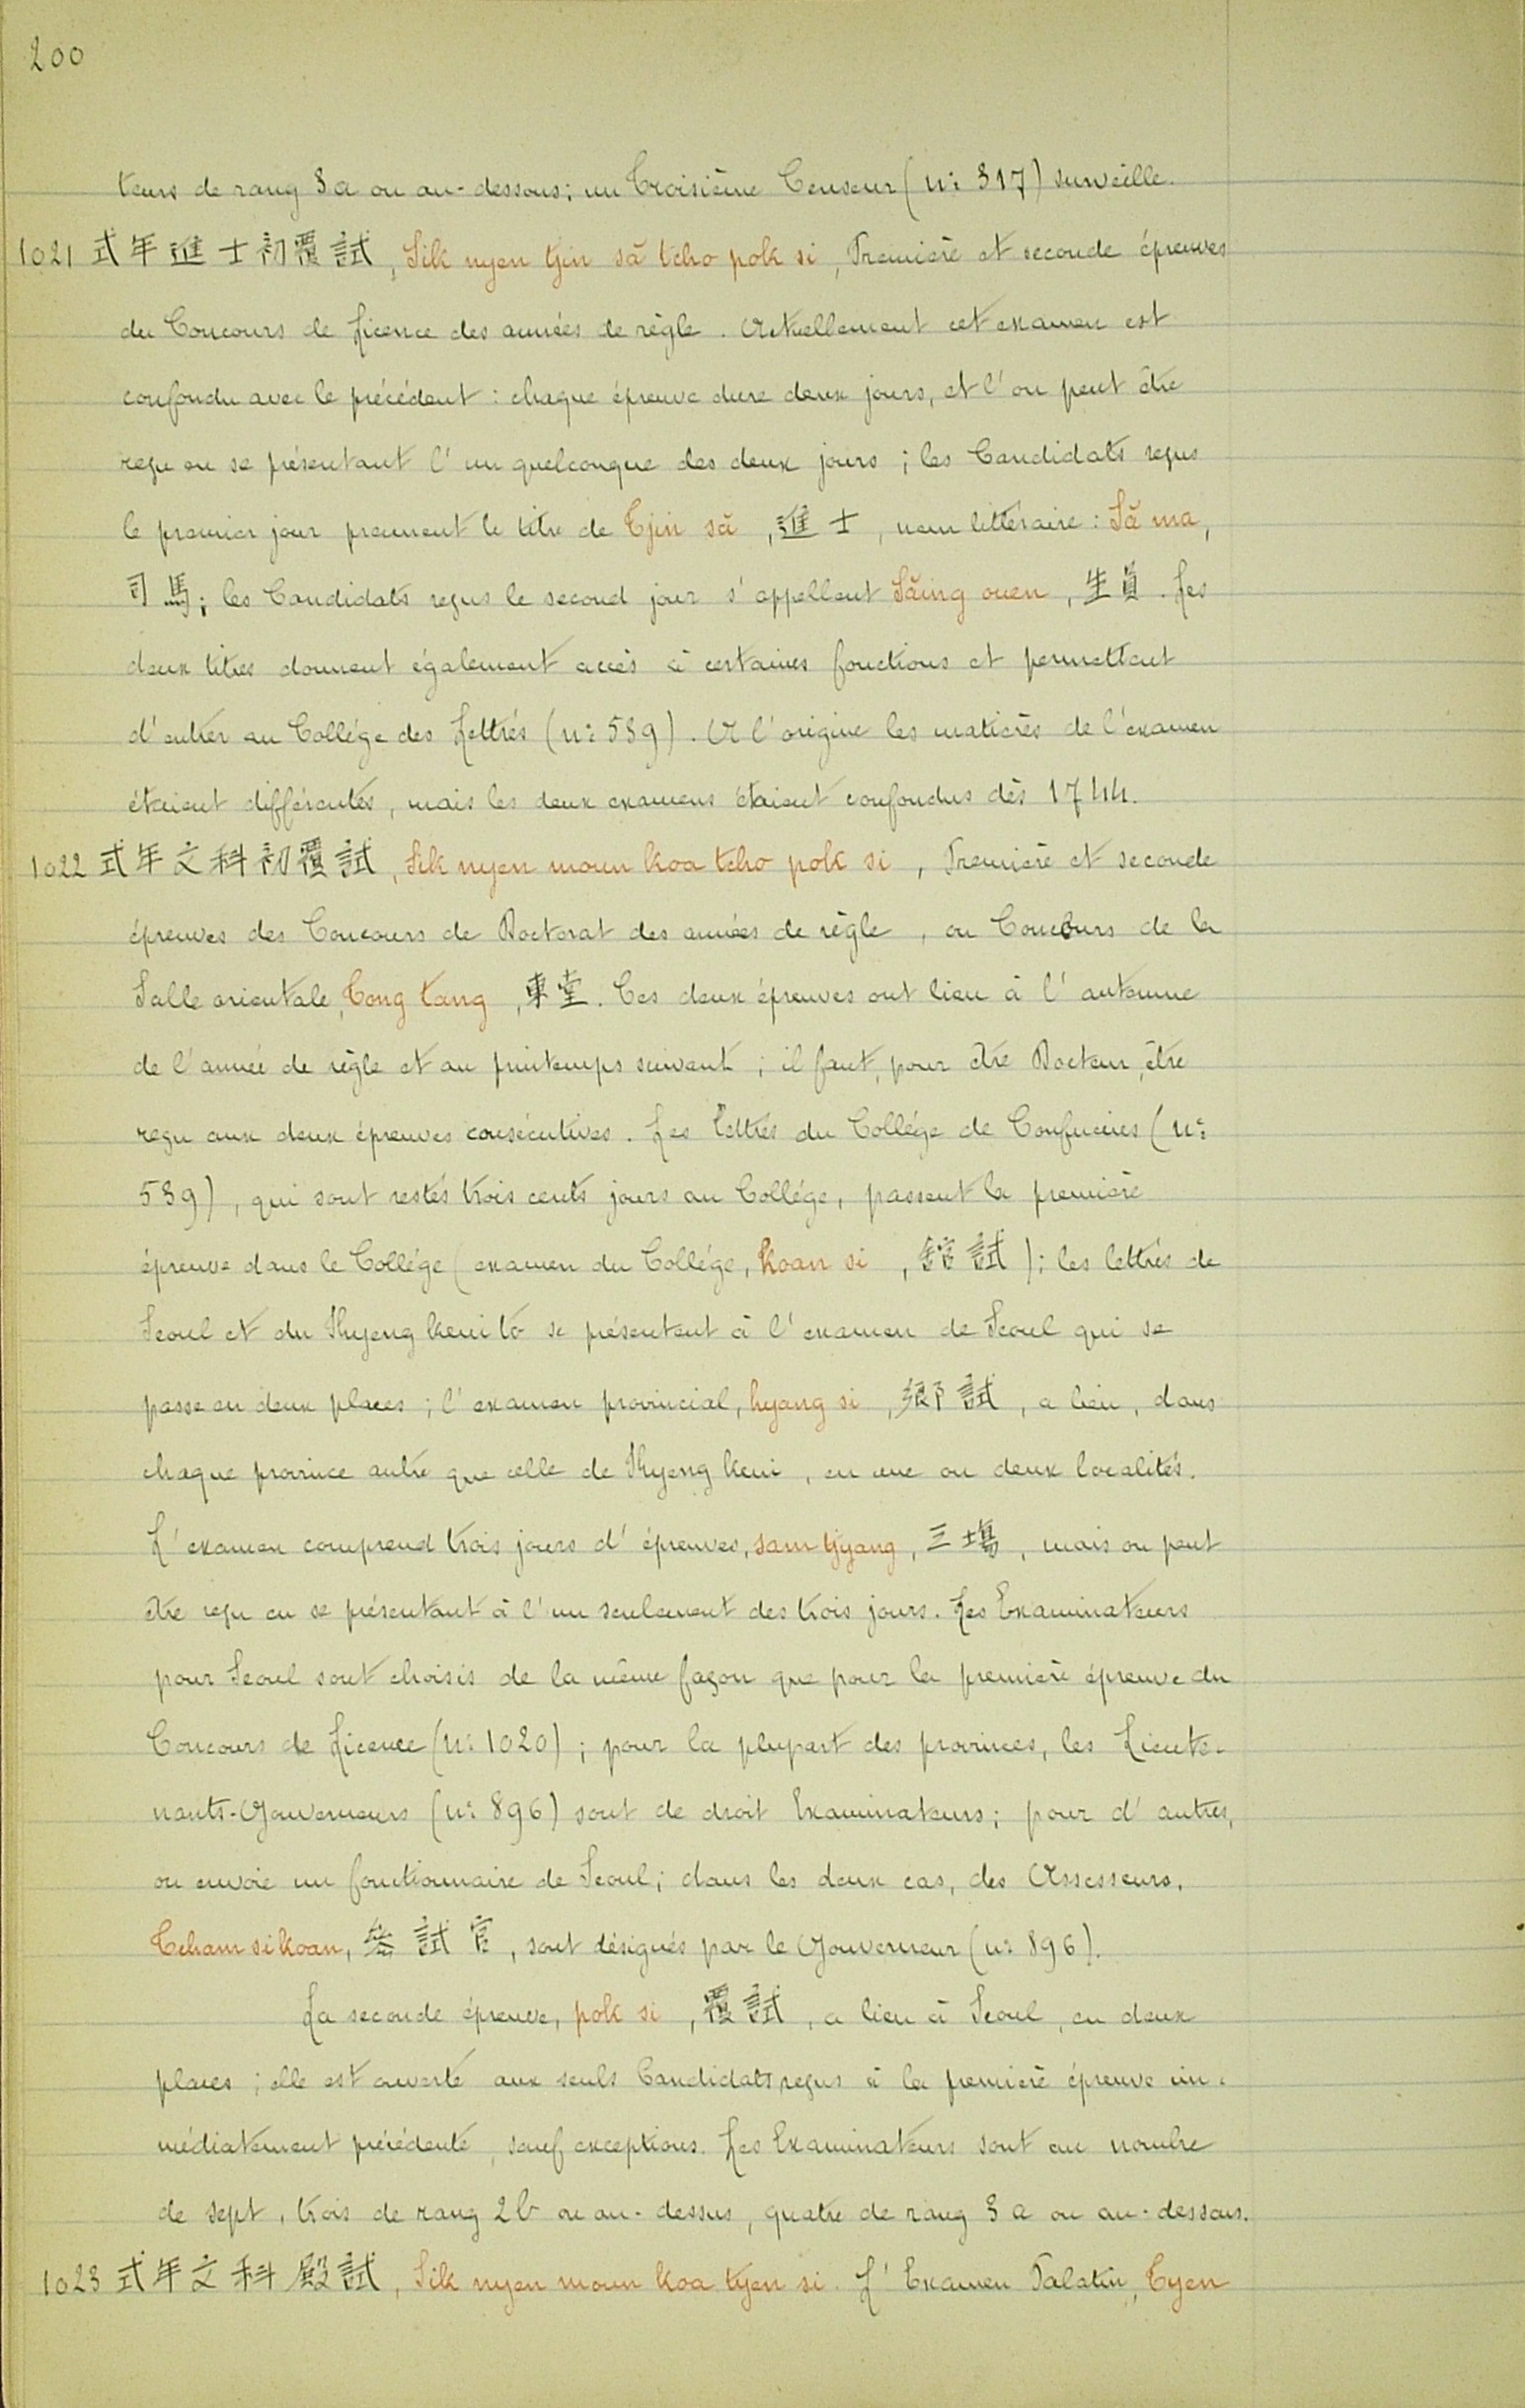 200
teurs de rang 3a ou au-dessous; un Troisième Censeur (n: 317) surveille.
1021 式年進士初覆試, Sik nyen tjin să tcho pok si, Première et seconde épreuves
du Concours de Licence des années de règle. Actuellement cet examen est
confondu avec le précédent: chaque épreuve dure deux jours, et l'on peut être
reçu en se présentant l'un quelconque des deux jours; les Candidats reçus
le premier jour prennent le titre de Tjin să, 進士, nom littéraire: Să ma,
司馬; les Candidats reçus le second jour s'appellent Săing ouen, 生員. Les
deux titres donnent également accès à certaines fonctions et permettent
d'entrer au Collége des Lettrés (n: 539). A l'origine les matières de l'examen
étaient différentes, mais les deux examens étaient confondus dès 1744.
1022 式年文科初覆試, Sik nyen moun koa tcho pok si, Première et seconde
épreuves des Concours de Doctorat des années de règle, ou Concours de la
Salle orientale, Tong tang, 東堂. Ces deux épreuves ont lieu à l'automne
de l'année de règle et au printemps suivant; il faut, pour être Docteur, être
reçu aux deux épreuves consécutives. Les lettrés du Collége de Confucius (n:
539), qui sont restés trois cents jours au Collége, passent la première
épreuve dans le Collége (examen du Collége, Koan si, 舘試); les lettrés de
Seoul et du Kyeng keui to se présentent à l'examen de Seoul qui se
passe en deux places; l'examen provincial, hyang si, 鄕試, a lieu, dans
chaque province autre que celle de Kyeng keui, en une ou deux localités.
L'examen comprend trois jours d'épreuves, sam tjyang, 三塲, mais on peut
être reçu en se présentant à l'un seulement des trois jours. Les Examinateurs
pour Seoul sont choisis de la même façon que pour la première épreuve du
Concours de Licence (n: 1020); pour la plupart des provinces, les Lieute-
nants-Gouverneurs (n: 896) sont de droit Examinateurs; pour d'autres,
on envoie un fonctionnaire de Seoul; dans les deux cas, des Assesseurs,
Tcham si koan, 叅試官, sont désignés par le Gouverneur (n: 896).
La seconde épreuve, pok si, 覆試, a lieu à Seoul, en deux
places; elle est ouverte aux seuls Candidats reçus à la première épreuve im-
médiatement précédente, sauf exceptions. Les Examinateurs sont au nombre
de sept, trois de rang 2b ou au-dessus, quatre de rang 3a ou au-dessous.
1023 式年文科殿試, Sik nyen moun koa tyen si. L'Examen Palatin, Tyen